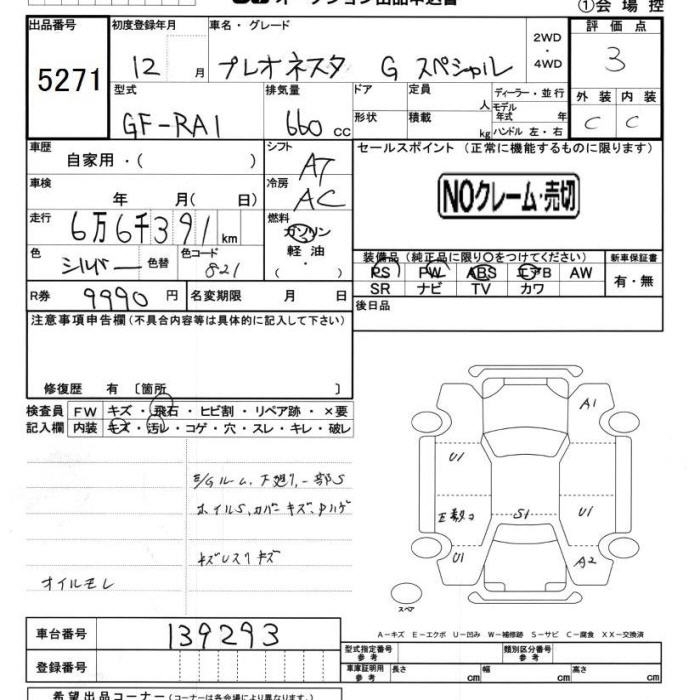 オークション出品申込書
①会場控
出品番号 初度登録年月 車名・グレード 評価点
5271 12 月 プレオネスタ G スペシャル 2WD・4WD 3
型式 排気量 ドア 定員 人 ディーラー・並行 外装 内装
GF-RA1 660 cc 形状 積載 kg モデル年式 年 ハンドル 左・右 C C
車歴 自家用・( ) シフト AT セールスポイント (正常に機能するものに限ります)
車検 年 月( 日) 冷房 AC NOクレーム・売切
走行 6万6千391km 燃料 ガソリン 軽油・( )
色 シルバー 色替 色コード 821 装備品(純正品に限り○をつけてください) 新車保証書
PS PW ABS エアB AW 有・無
R券 9990円 名変期限 月 日 SR ナビ TV カワ
後日品
注意事項申告欄(不具合内容等は具体的に記入して下さい)
修復歴 有 〔箇所 〕
検査員 FW キズ・飛石・ヒビ割・リペア跡・×要
記入欄 内装 キズ・汚レ・コゲ・穴・スレ・キレ・破レ
E/Gルーム、下廻り、一部S
ホイルS、カバーキズ、ハゲ
キズUスリキズ
オイルモレ
A1
U1
S1 U1
U1 A2
スペア
A-キズ E-エクボ U-凹み W-補修跡 S-サビ C-腐食 XX-交換済
車台番号 139293
登録番号
型式指定番号 参考 類別区分番号 参考
車庫証明用 参考 長さ cm 幅 cm 高さ cm
希望出品コーナー(コーナーは各会場により異なります。)